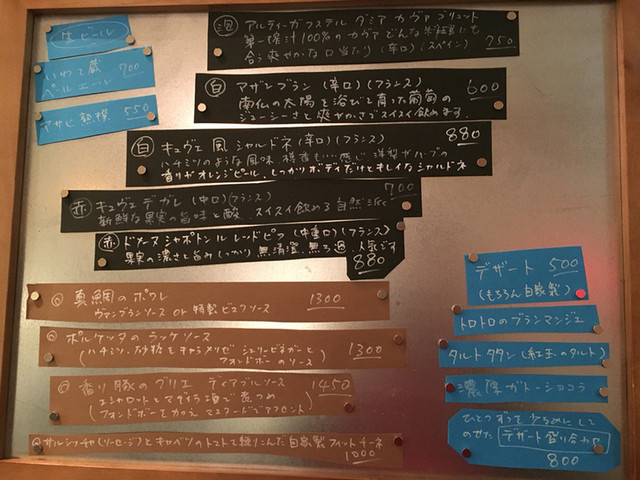 生ビール
いわて蔵 700
ペールエール
アサヒ熟撰 550
泡 アルティーガ フステル ダミア カヴァ ブリュット
第一搾汁100%のカヴァ どんなお料理にも
合う爽やかな口当たり(辛口)(スペイン) 750
白 アザンブラン (辛口)(フランス) 600
南仏の太陽を浴びて育った葡萄の
ジューシーさと爽やかさでスイスイ飲めます。
白 キュヴェ 風 シャルドネ(辛口)(フランス) 880
ハチミツのような風味 樽香も…感じ 洋梨やハーブの
香りやオレンジピール、しっかりボディだけどキレイなシャルドネ
赤 キュヴェ デガレ (中口)(フランス) 700
新鮮な果実の旨味と酸、スイスイ飲める自然派
赤 ドメーヌ シャポトン ル レッド ピフ (中重口)(フランス)
果実の濃さと旨みしっかり 無清澄、無ろ過、人気です
880
真鯛のポワレ
ヴァンブランソース or 特製ビスクソース 1300
ポルケッタのラッケソース
(ハチミツ、砂糖をキャラメリゼ シェリービネガーと
フォンドボーのソース) 1300
香り豚のグリエ ディアブルソース 1450
エシャロットとマデイラ酒で煮つめ
(フォンドボーを加え マスタードでアクセント)
サルシッチャ(ソーセージ)とキャベツのトマトで練りこんだ自家製フェットチーネ
1000
デザート 500
(もちろん自家製)
トロトロのブランマンジェ
タルトタタン(紅玉のタルト)
濃厚ガトーショコラ
ひとつずつを少なめにして
のせた デザート盛り合わせ
800